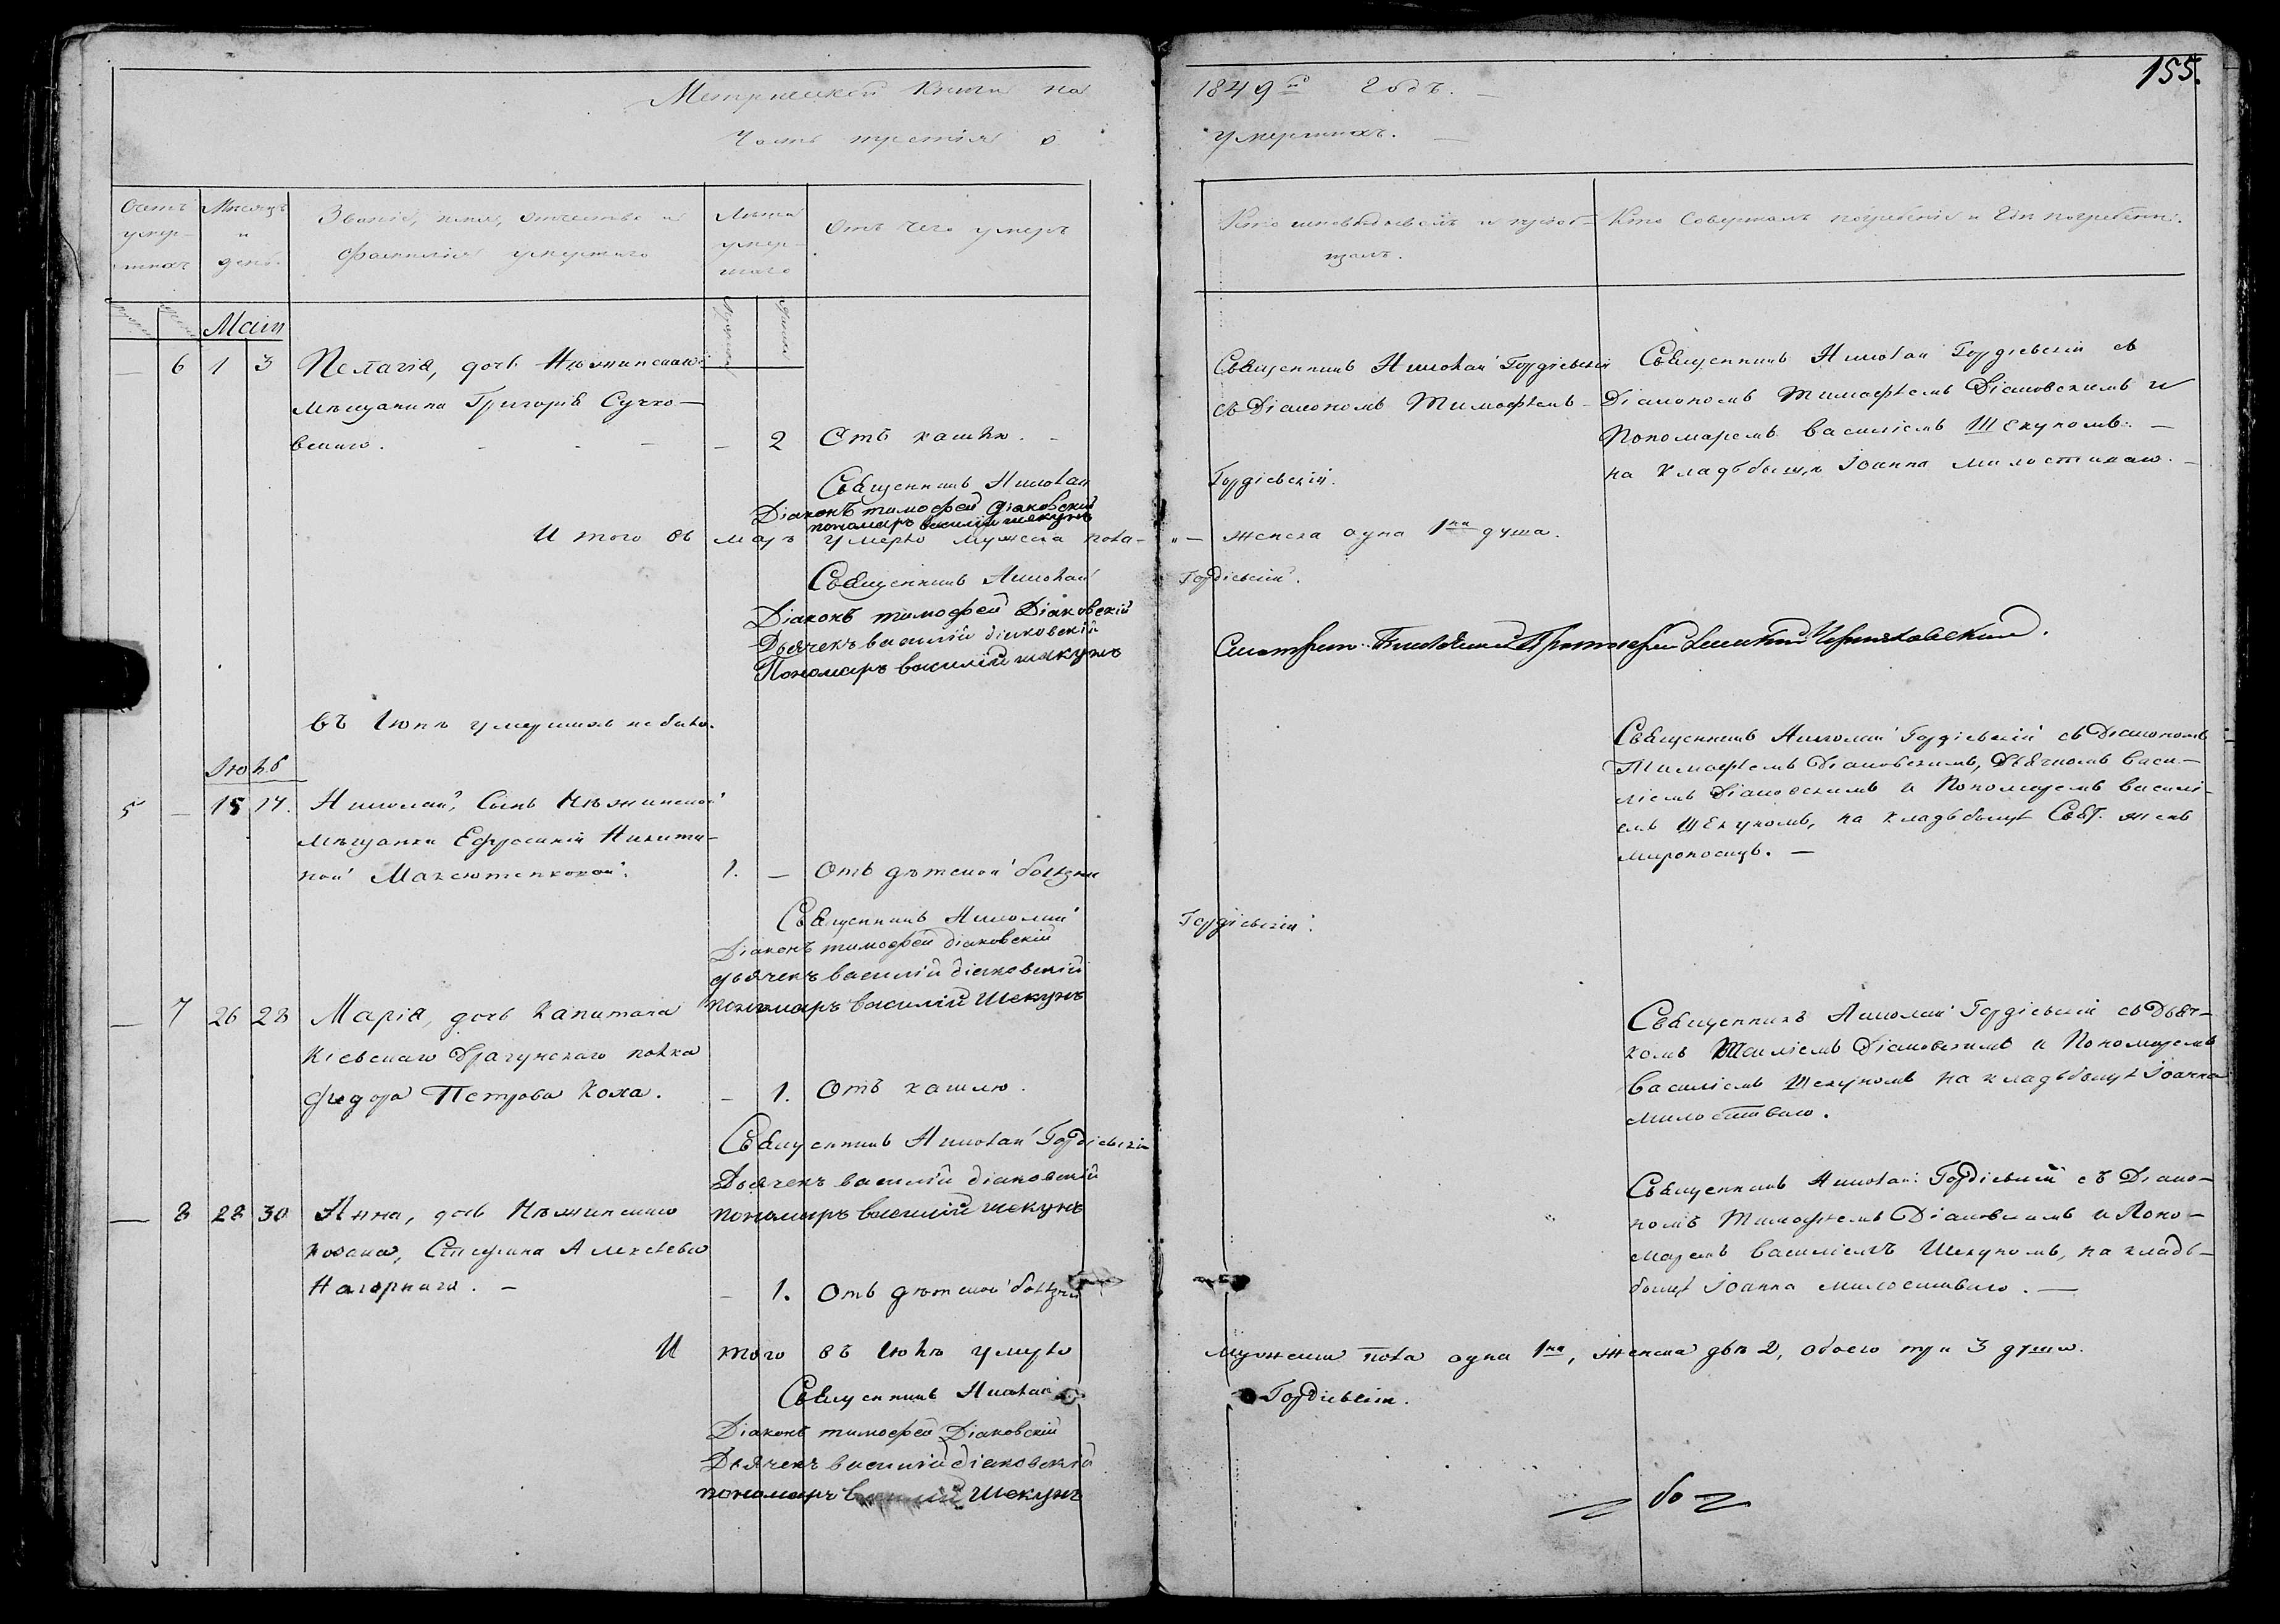 155.
Метрической книги на 1849й Годъ. —
Часть третія о умершихъ. —
Счетъ умер-шихъ
Мѣсяцъ и день.
Званіе, имя, отчество и фамилія умершаго
Лѣта умер-шаго
Отъ чего умеръ
Кто исповѣдывалъ и пріоб-щалъ.
Кто Совершалъ погребеніе и Гдѣ погребены.
Маій
— 6 1 3 Пелагія, дочь Нѣжинскаго
мѣщанина Григорія Сучко-
вскаго. — 2 Отъ кашлю. -
Священникъ Николай Гордіевскій
съ Діакономъ Тимофѣемъ
Священникъ Николай Гордіевскій съ
Діакономъ Тимофѣемъ Діаковскимъ и
Пономаремъ Василіемъ Шекуномъ. —
на кладьбыщѣ Іоанна милостиваго. —
Священникъ Николай Гордіевскій.
Діаконъ тимофей Діаковскій
пономарь василій шекунъ
И того въ маѣ умерло мужеска пола - „ — женска одна 1на душа.
Священникъ Николай Гордіевскій.
Діаконъ тимофей Діаковскій
Дьячекъ василій діяковскій
Пономарь василій шекунъ
въ Іюнѣ умершихъ не было.
Іюль
5 — 15 17. Николай, Сынъ Нѣжинской
мѣщанки Ефросиніи Никити-
ной Максютенковой. 1. — Отъ дѣтской болѣзни
Священникъ Николай Гордіевскій съ Діакономъ
Тимофѣемъ Діаковскимъ, Дьячкомъ Васи-
ліемъ Діаковскимъ и Пономаремъ Василі-
емъ Шекуномъ, на кладьбыщѣ Свят. женъ
мироносицъ. —
Священникъ Николай Гордіевскій.
Діаконъ тимофей діаковскій
дьячекъ василій діяковскій
пономарь василій Шекунъ
— 7 26 28 Марія, дочь Капитана
Кіевскаго Драгунскаго полка
Федора Петрова Коха. — 1. Отъ кашлю.
Священникъ Николай Гордіевскій съ Дьяч-
комъ Василіемъ Діаковскимъ и Пономаремъ
Василіемъ Шекуномъ на кладьбыщѣ Іоанна
милостиваго.
Священникъ Николай Гордіевскій
Дьячекъ василій діаковскій
пономарь василій шекунъ
— 8 28 30 Анна, дочь Нѣжинскаго
Алексѣева
Нагорнаго. — — 1. Отъ дѣтской болѣзни
Священникъ Николай Гордіевскій съ Діако-
номъ Тимофѣемъ Діаковскимъ и Поно-
маремъ Василіемъ Шекуномъ, на кладь-
быщѣ Іоанна милостиваго. —
И того въ Іюлѣ умерло мужеска пола одна 1на, женска двѣ 2, обоего три 3 души.
Священникъ Николай Гордіевскій.
Діаконъ тимофей Діаковскій
Дьячекъ василій діяковскій
пономарь василій Шекунъ